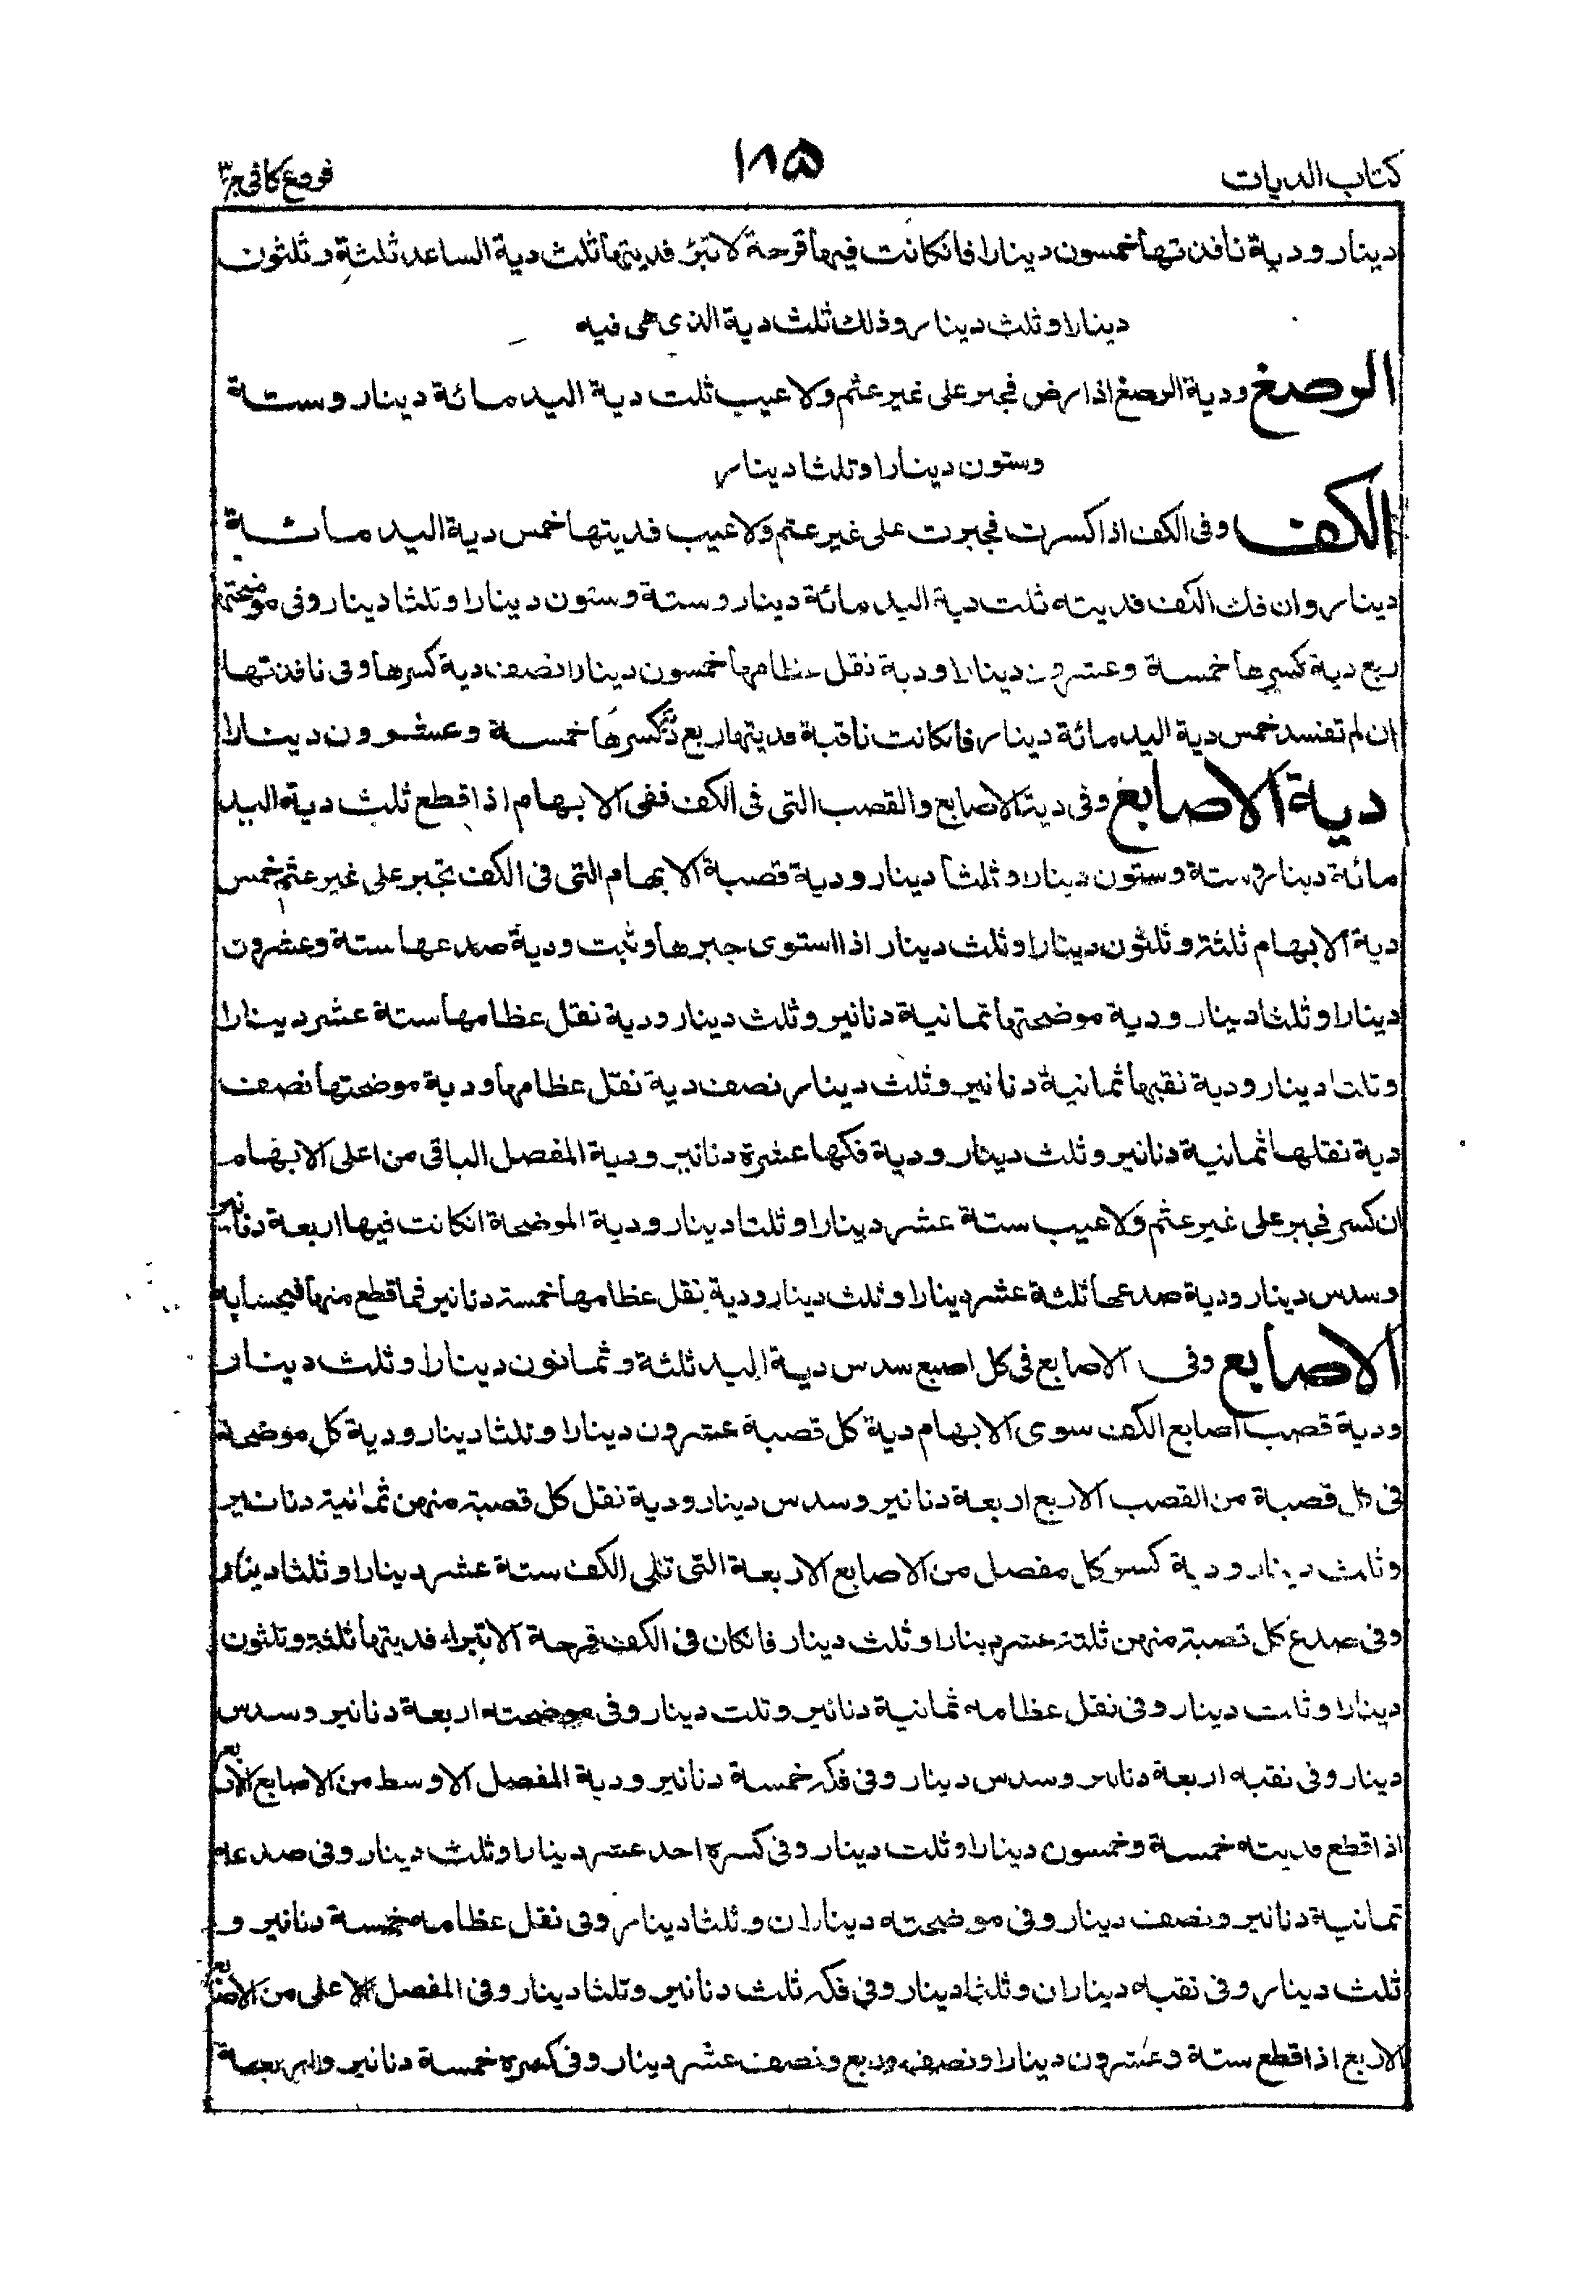 كتاب الديات
١٨٥
فروع كافى ج٣
دينار ودية نافذتها خمسون دينارا فانكانت فيها قرحة لا تبرئ فديتها ثلث دية الساعد ثلثة وثلثون
دينارا وثلث دينار وذلك ثلث دية الذى هى فيه
الرصغ ودية الرصغ اذا رض فجبر على غير عثم ولا عيب ثلث دية اليد مائة دينار وستة
وستون دينارا وثلثا دينار
الكف وفى الكف اذا كسرت فجبرت على غير عثم ولا عيب فديتها خمس دية اليد مائة
دينار وان فك الكف فديته ثلث دية اليد مائة دينار وستة وستون دينارا وثلثا دينار وفى موضحتها
ربع دية كسرها خمسة وعشرون دينارا ودية نقل عظامها خمسون دينارا نصف دية كسرها وفى نافذتها
ان لم تفسد خمس دية اليد مائة دينار فانكانت ناقبة فديتها ربع دية كسرها خمسة وعشرون دينارا
دية الاصابع وفى دية الاصابع والقصب التى فى الكف ففى الابهام اذا قطع ثلث دية اليد
مائة دينار وستة وستون دينارا وثلثا دينار ودية قصبة الابهام التى فى الكف تجبر على غير عثم خمس
دية الابهام ثلثة وثلثون دينارا وثلث دينار اذا استوى جبرها وثبت ودية صدعها ستة وعشرون
دينارا وثلثا دينار ودية موضحتها ثمانية دنانير وثلث دينار ودية نقل عظامها ستة عشر دينارا
وثلثا دينار ودية نقبها ثمانية دنانير وثلث دينار نصف دية نقل عظامها ودية موضحتها نصف
دية نقلها ثمانية دنانير وثلث دينار ودية فكها عشرة دنانير ودية المفصل الباقى من اعلى الابهام
ان كسر فجبر على غير عثم ولا عيب ستة عشر دينارا وثلثا دينار ودية الموضحة انكانت فيها اربعة دنانير
وسدس دينار ودية صدعها ثلثة عشر دينارا وثلث دينار ودية نقل عظامها خمسة دنانير فما قطع منها فبحسابه
الاصابع وفى الاصابع فى كل اصبع سدس دية اليد ثلثة وثمانون دينارا وثلث دينار
ودية قصب اصابع الكف سوى الابهام دية كل قصبة عشرون دينارا وثلثا دينار ودية كل موضحة
فى كل قصبة من القصب الاربع اربعة دنانير وسدس دينار ودية نقل كل قصبة منهن ثمانية دنانير
وثلث دينار ودية كسر كل مفصل من الاصابع الاربعة التى تلى الكف ستة عشر دينارا وثلثا دينار
وفى صدع كل قصبة منهن ثلثة عشر دينارا وثلث دينار فانكان فى الكف قرحة لا تبراء فديتها ثلثة وثلثون
دينارا وثلث دينار وفى نقل عظامه ثمانية دنانير وثلث دينار وفى موضحته اربعة دنانير وسدس
دينار وفى نقبه اربعة دنانير وسدس دينار وفى فكه خمسة دنانير ودية المفصل الاوسط من الاصابع الاربع
اذا قطع فديته خمسة وخمسون دينارا وثلث دينار وفى كسره احد عشر دينارا وثلث دينار وفى صدعه
ثمانية دنانير ونصف دينار وفى موضحته ديناران وثلثا دينار وفى نقل عظامه خمسة دنانير و
ثلث دينار وفى نقبه ديناران وثلثا دينار وفى فكه ثلث دنانير وثلثا دينار وفى المفصل الاعلى من الاصابع
الاربع اذا قطع ستة وعشرون دينارا ونصف وربع ونصف عشر دينار وفى كسره خمسة دنانير واربعة